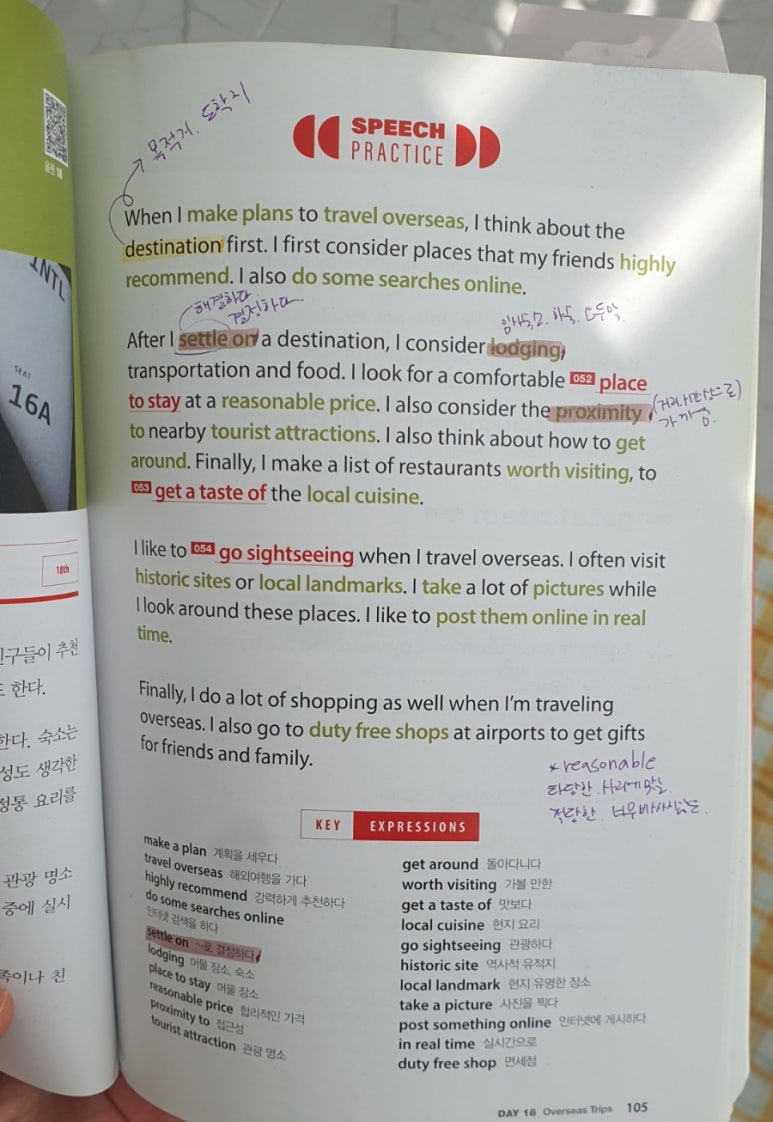 음원 18
INTL
SEAT
16A
18th
친구들이 추천
도 한다.
한다. 숙소는
성도 생각한
정통 요리를
관광 명소
중에 실시
족이나 친
SPEECH
PRACTICE
목적지. 도착지
When I make plans to travel overseas, I think about the
destination first. I first consider places that my friends highly
recommend. I also do some searches online.
해결하다
결정하다
임시숙소. 하숙.
After I settle on a destination, I consider lodging,
transportation and food. I look for a comfortable 052 place
to stay at a reasonable price. I also consider the proximity
(거리나 시간상으로)
가까움.
to nearby tourist attractions. I also think about how to get
around. Finally, I make a list of restaurants worth visiting, to
053 get a taste of the local cuisine.
I like to 054 go sightseeing when I travel overseas. I often visit
historic sites or local landmarks. I take a lot of pictures while
I look around these places. I like to post them online in real
time.
Finally, I do a lot of shopping as well when I'm traveling
overseas. I also go to duty free shops at airports to get gifts
for friends and family.
* reasonable
타당한. 사리에 맞는.
적당한. 너무 비싸지 않은.
KEY EXPRESSIONS
make a plan 계획을 세우다
travel overseas 해외여행을 가다
highly recommend 강력하게 추천하다
do some searches online
인터넷 검색을 하다
settle on ~로 결정하다
lodging 머물 장소, 숙소
place to stay 머물 장소
reasonable price 합리적인 가격
proximity to 접근성
tourist attraction 관광 명소
get around 돌아다니다
worth visiting 가볼 만한
get a taste of 맛보다
local cuisine 현지 요리
go sightseeing 관광하다
historic site 역사적 유적지
local landmark 현지 유명한 장소
take a picture 사진을 찍다
post something online 인터넷에 게시하다
in real time 실시간으로
duty free shop 면세점
DAY 18 Overseas Trips 105